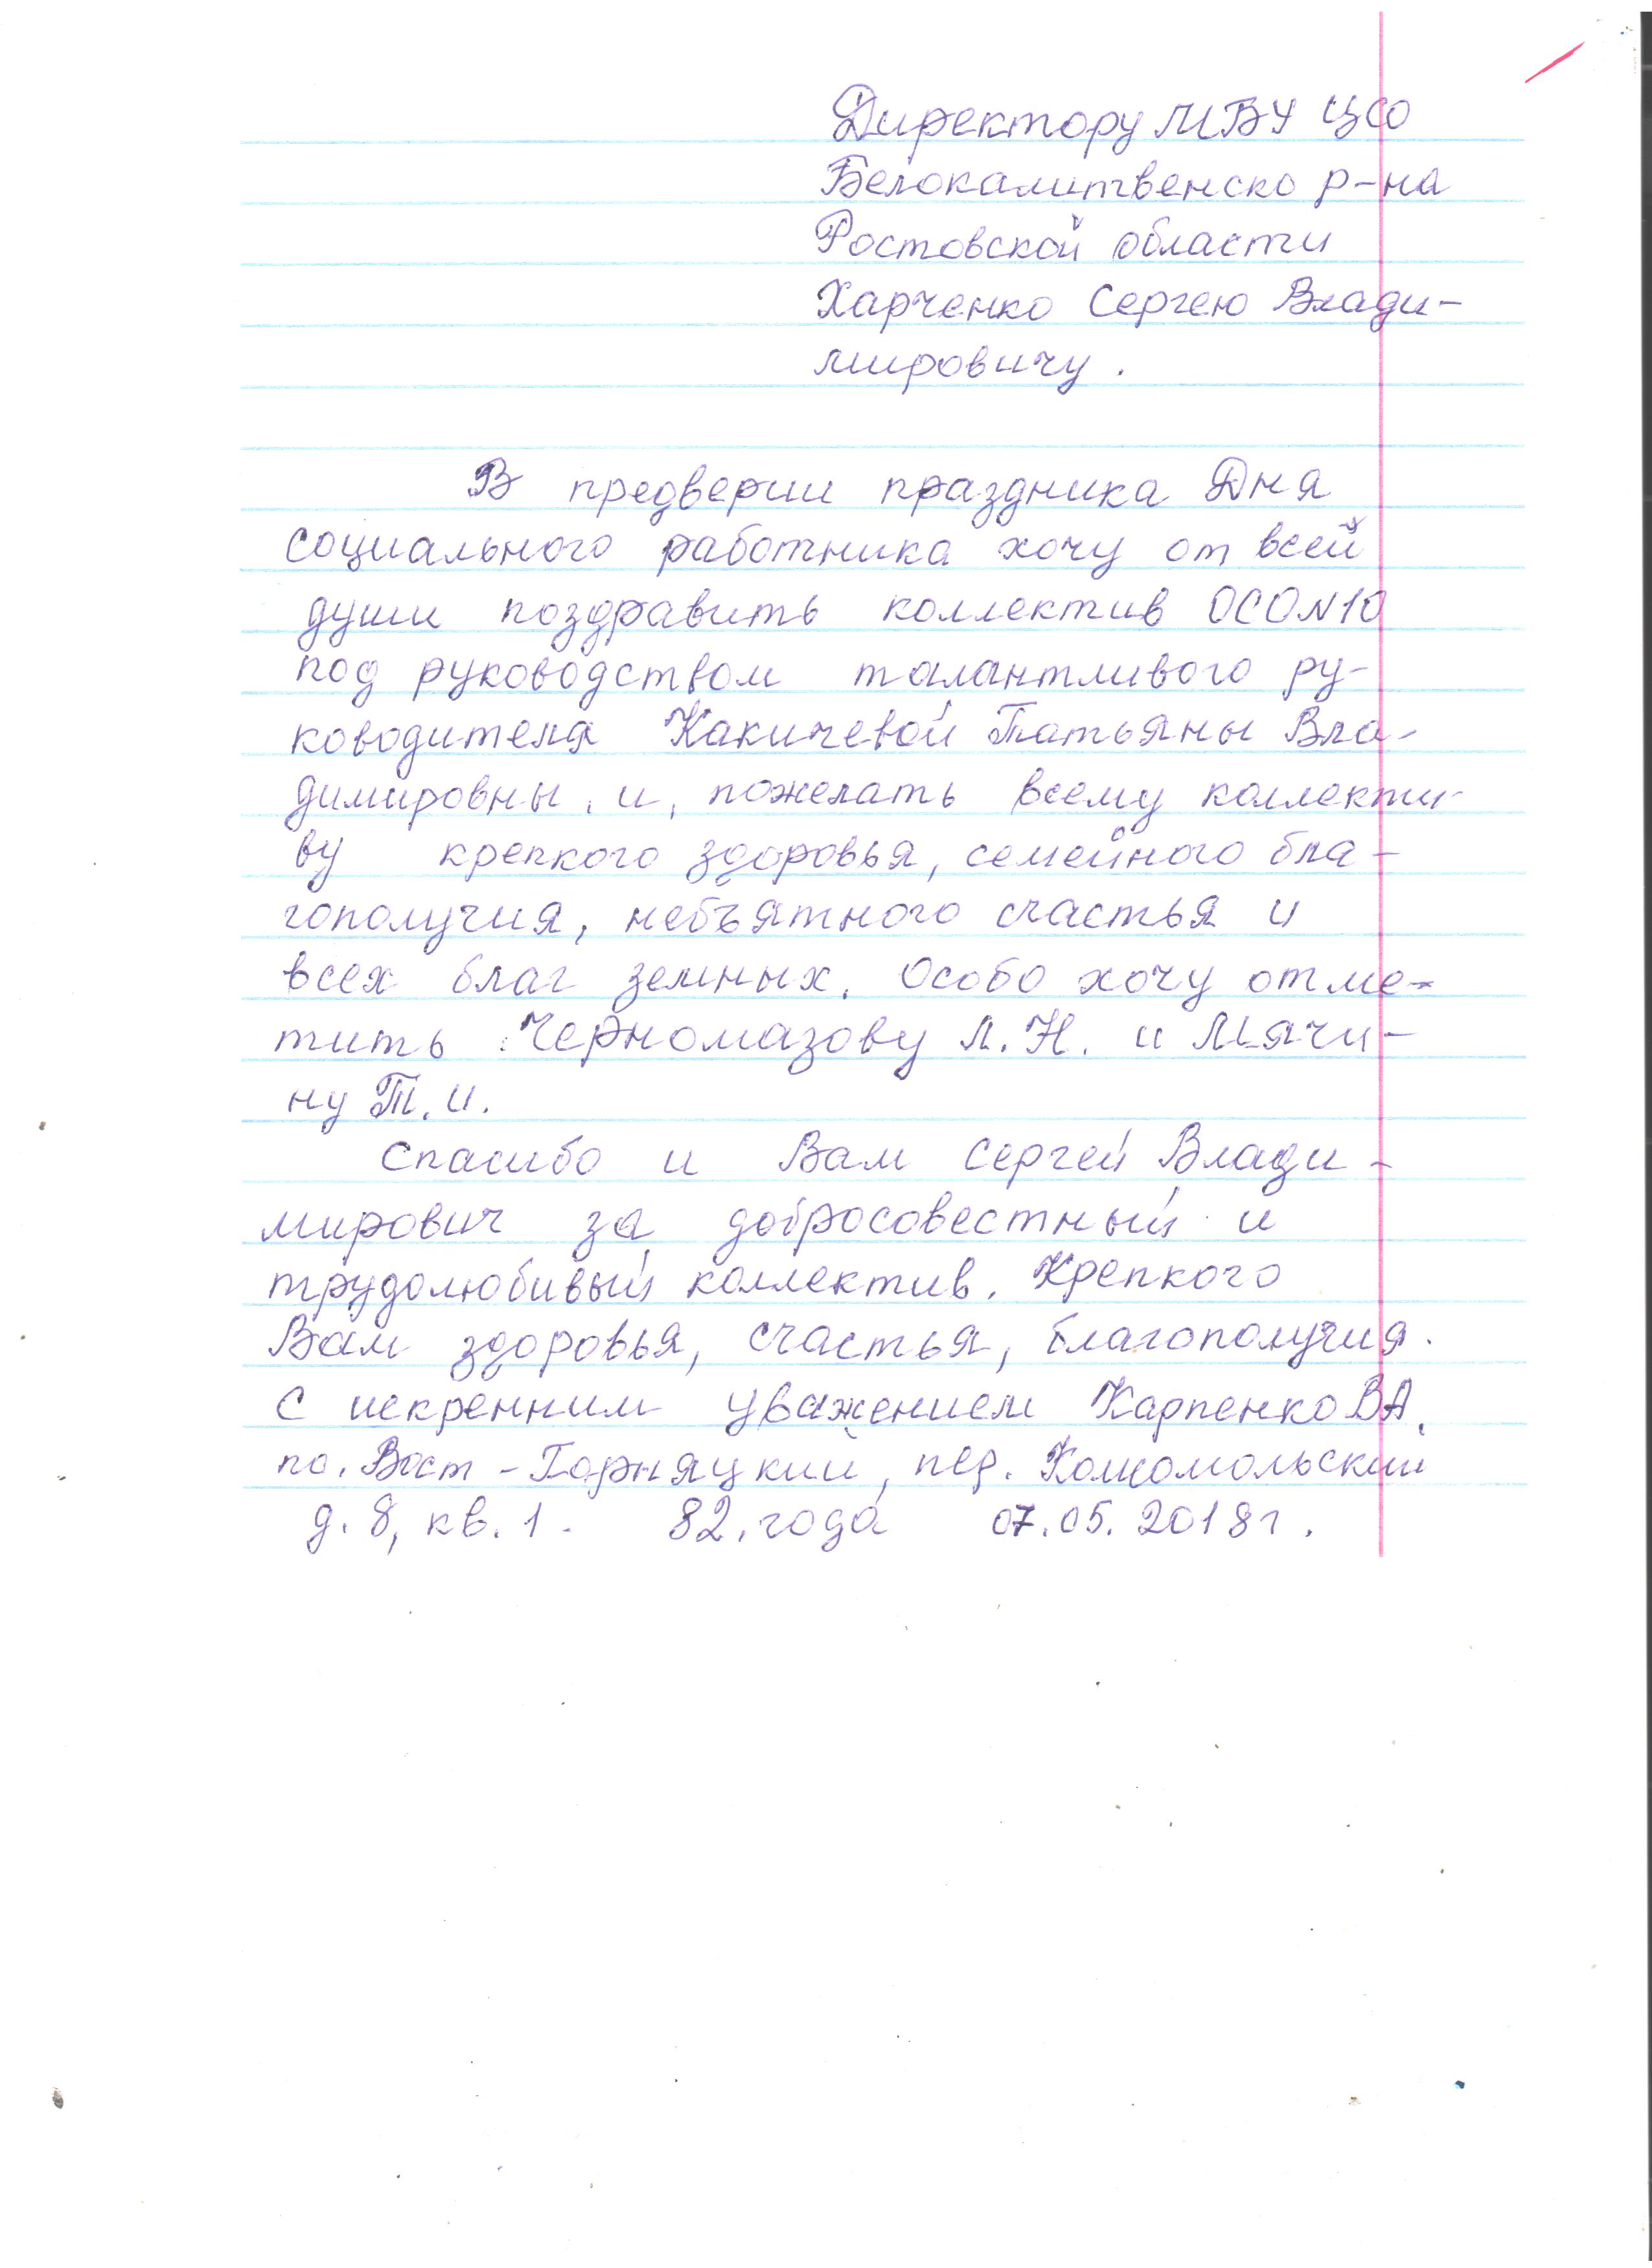 Директору МБУ ЦСО
Белокалитвенско р-на
Ростовской области
Харченко Сергею Влади-
мировичу.
В предверии праздника Дня
социального работника хочу от всей
души поздравить коллектив ОСО N10
под руководством талантливого ру-
ководителя Какичевой Татьяны Вла-
димировны. и, пожелать всему коллекти-
ву крепкого здоровья, семейного бла-
гополучия, небъятного счастья и
всех благ земных. Особо хочу отме-
тить Черномазову Л.Н. и Мячи-
ну Т.И.
Спасибо и Вам Сергей Влади-
мирович за добросовестный и
трудолюбивый коллектив. Крепкого
Вам здоровья, счастья, благополучия.
С искренним уважением Карпенко В А.
по. Вост-Горняцкий, пер. Комсомольский
д. 8, кв. 1. 82. года 07.05.2018г.